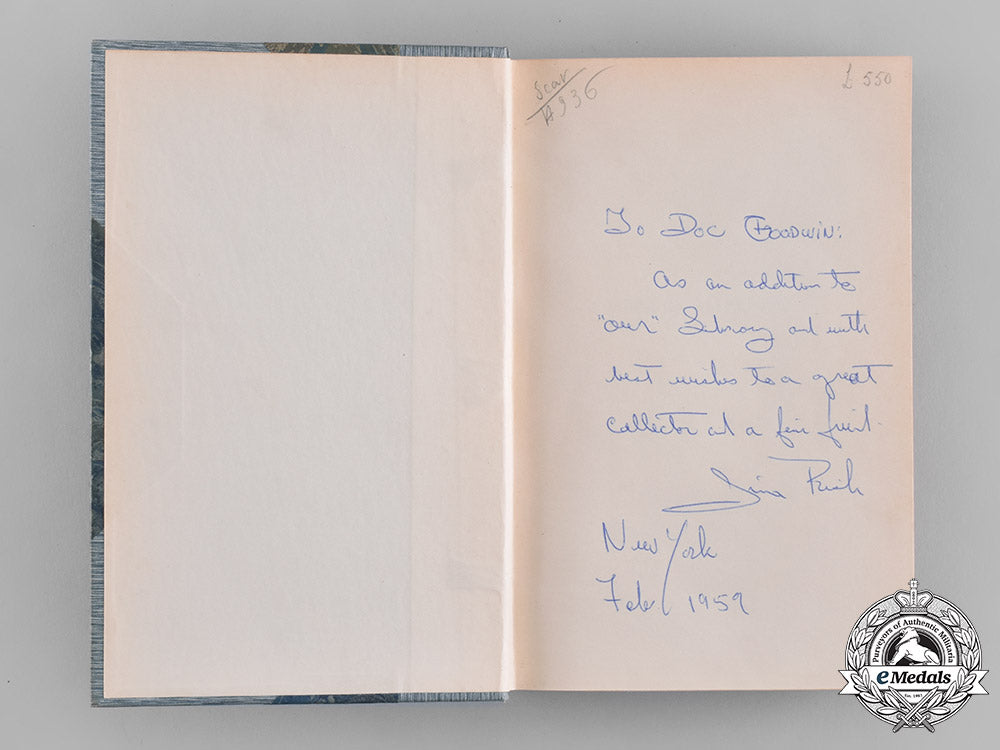 Scar
A936
£ 550
To Doc Goodwin:
As an addition to
"our" Library and with
best wishes to a great
collector and a fine friend.
New York
Feb. 1959
Purveyors of Authentic Militaria
eMedals
Est. 1967